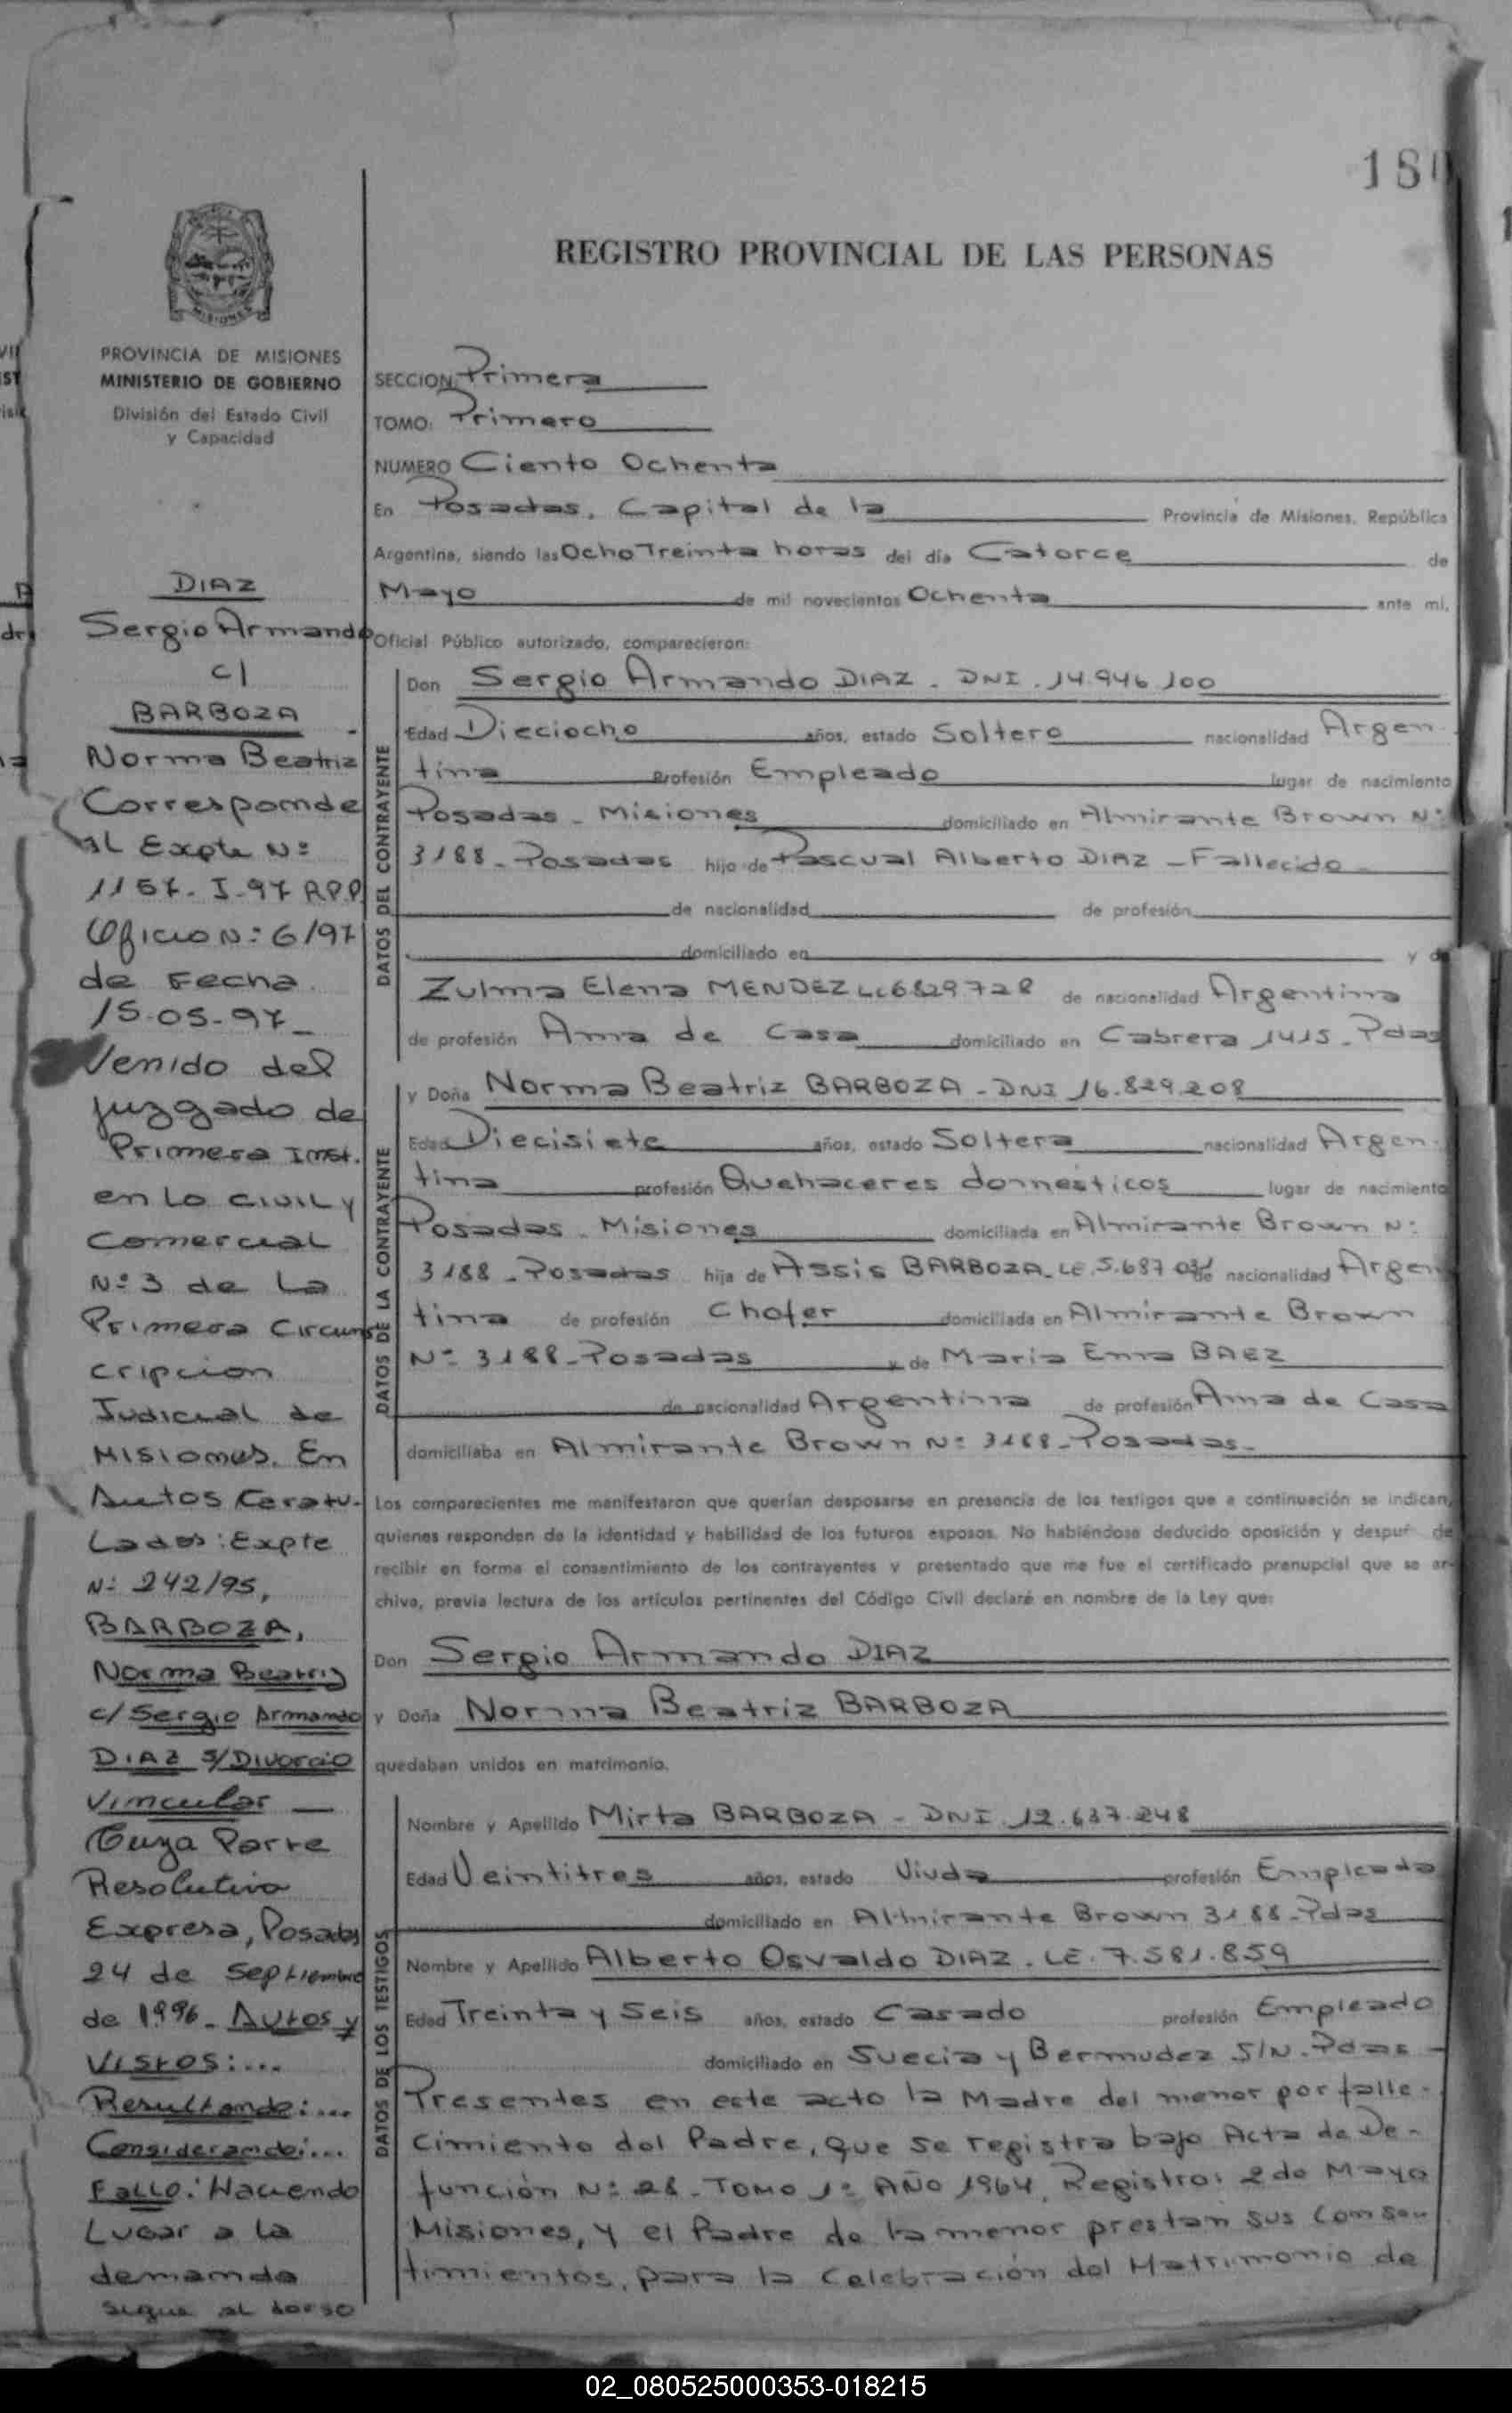 180
REGISTRO PROVINCIAL DE LAS PERSONAS
MISIONES
PROVINCIA DE MISIONES
MINISTERIO DE GOBIERNO
División del Estado Civil
y Capacidad
DIAZ
Sergio Armando
c/
BARBOZA
Norma Beatriz
Corresponde
al Expte Nº
1157-I-97 RPP
Oficio Nº 6/97
de Fecha
15-05-97_
Venido del
Juzgado de
Primera Inst.
en Lo Civil y
Comercial
Nº 3 de La
Primera Circuns
cripcion
Judicial de
Misiones. En
Autos Caratu-
Lados: Expte
Nº 242/95,
BARBOZA,
Norma Beatriz
c/ Sergio Armando
DIAZ S/Divorcio
Vincular _
Cuya Parte
Resolutiva
Expresa, Posadas
24 de Septiembre
de 1996_ Autos y
Vistos:...
Resultando:...
Considerando:...
Fallo: Haciendo
Lugar a la
demanda
sigue al dorso
SECCION: Primera
TOMO: Primero
NUMERO Ciento Ochenta
En Posadas, Capital de la Provincia de Misiones, República
Argentina, siendo las Ocho Treinta horas del día Catorce de
Mayo de mil novecientos Ochenta ante mí,
Oficial Público autorizado, comparecieron:
DATOS DEL CONTRAYENTE
Don Sergio Armando DIAZ - DNI. 14.946.100
Edad Dieciocho años, estado Soltero nacionalidad Argen-
tina Profesión Empleado lugar de nacimiento
Posadas - Misiones domiciliado en Almirante Brown Nº
3188 - Posadas hijo de Pascual Alberto DIAZ - Fallecido -
de nacionalidad de profesión
domiciliado en y de
Zulma Elena MENDEZ LC 6829728 de nacionalidad Argentina
de profesión Ama de Casa domiciliado en Cabrera 1415 - Pdas
DATOS DE LA CONTRAYENTE
y Doña Norma Beatriz BARBOZA - DNI 16.829.208
Edad Diecisiete años, estado Soltera nacionalidad Argen-
tina profesión Quehaceres domésticos lugar de nacimiento
Posadas - Misiones domiciliada en Almirante Brown Nº
3188 - Posadas hija de Assis BARBOZA - LE. 5.687 de nacionalidad Argen
tina de profesión Chofer domiciliada en Almirante Brown
Nº 3188 - Posadas y de Maria Ema BAEZ
de nacionalidad Argentina de profesión Ama de Casa
domiciliaba en Almirante Brown Nº 3188 - Posadas -
Los comparecientes me manifestaron que querían desposarse en presencia de los testigos que a continuación se indican,
quienes responden de la identidad y habilidad de los futuros esposos. No habiéndose deducido oposición y despué de
recibir en forma el consentimiento de los contrayentes y presentado que me fue el certificado prenupcial que se ar-
chiva, previa lectura de los artículos pertinentes del Código Civil declaré en nombre de la Ley que:
Don Sergio Armando DIAZ
y Doña Norma Beatriz BARBOZA
quedaban unidos en matrimonio.
DATOS DE LOS TESTIGOS
Nombre y Apellido Mirta BARBOZA - DNI 12.637.248
Edad Veintitres años, estado Viuda profesión Empleada
domiciliado en Almirante Brown 3188 - Pdas
Nombre y Apellido Alberto Osvaldo DIAZ. LE. 7.581.859
Edad Treinta y Seis años, estado Casado profesión Empleado
domiciliado en Suecia y Bermudez S/N. Pdas -
Presentes en este acto la Madre del menor por falle-
cimiento del Padre, que se registra bajo Acta de De-
función Nº 28 - TOMO 1º AÑO 1964, Registro: 2 de Mayo
Misiones, y el Padre de la menor prestan sus Consen
timientos, para la Celebración del Matrimonio de
02_080525000353-018215